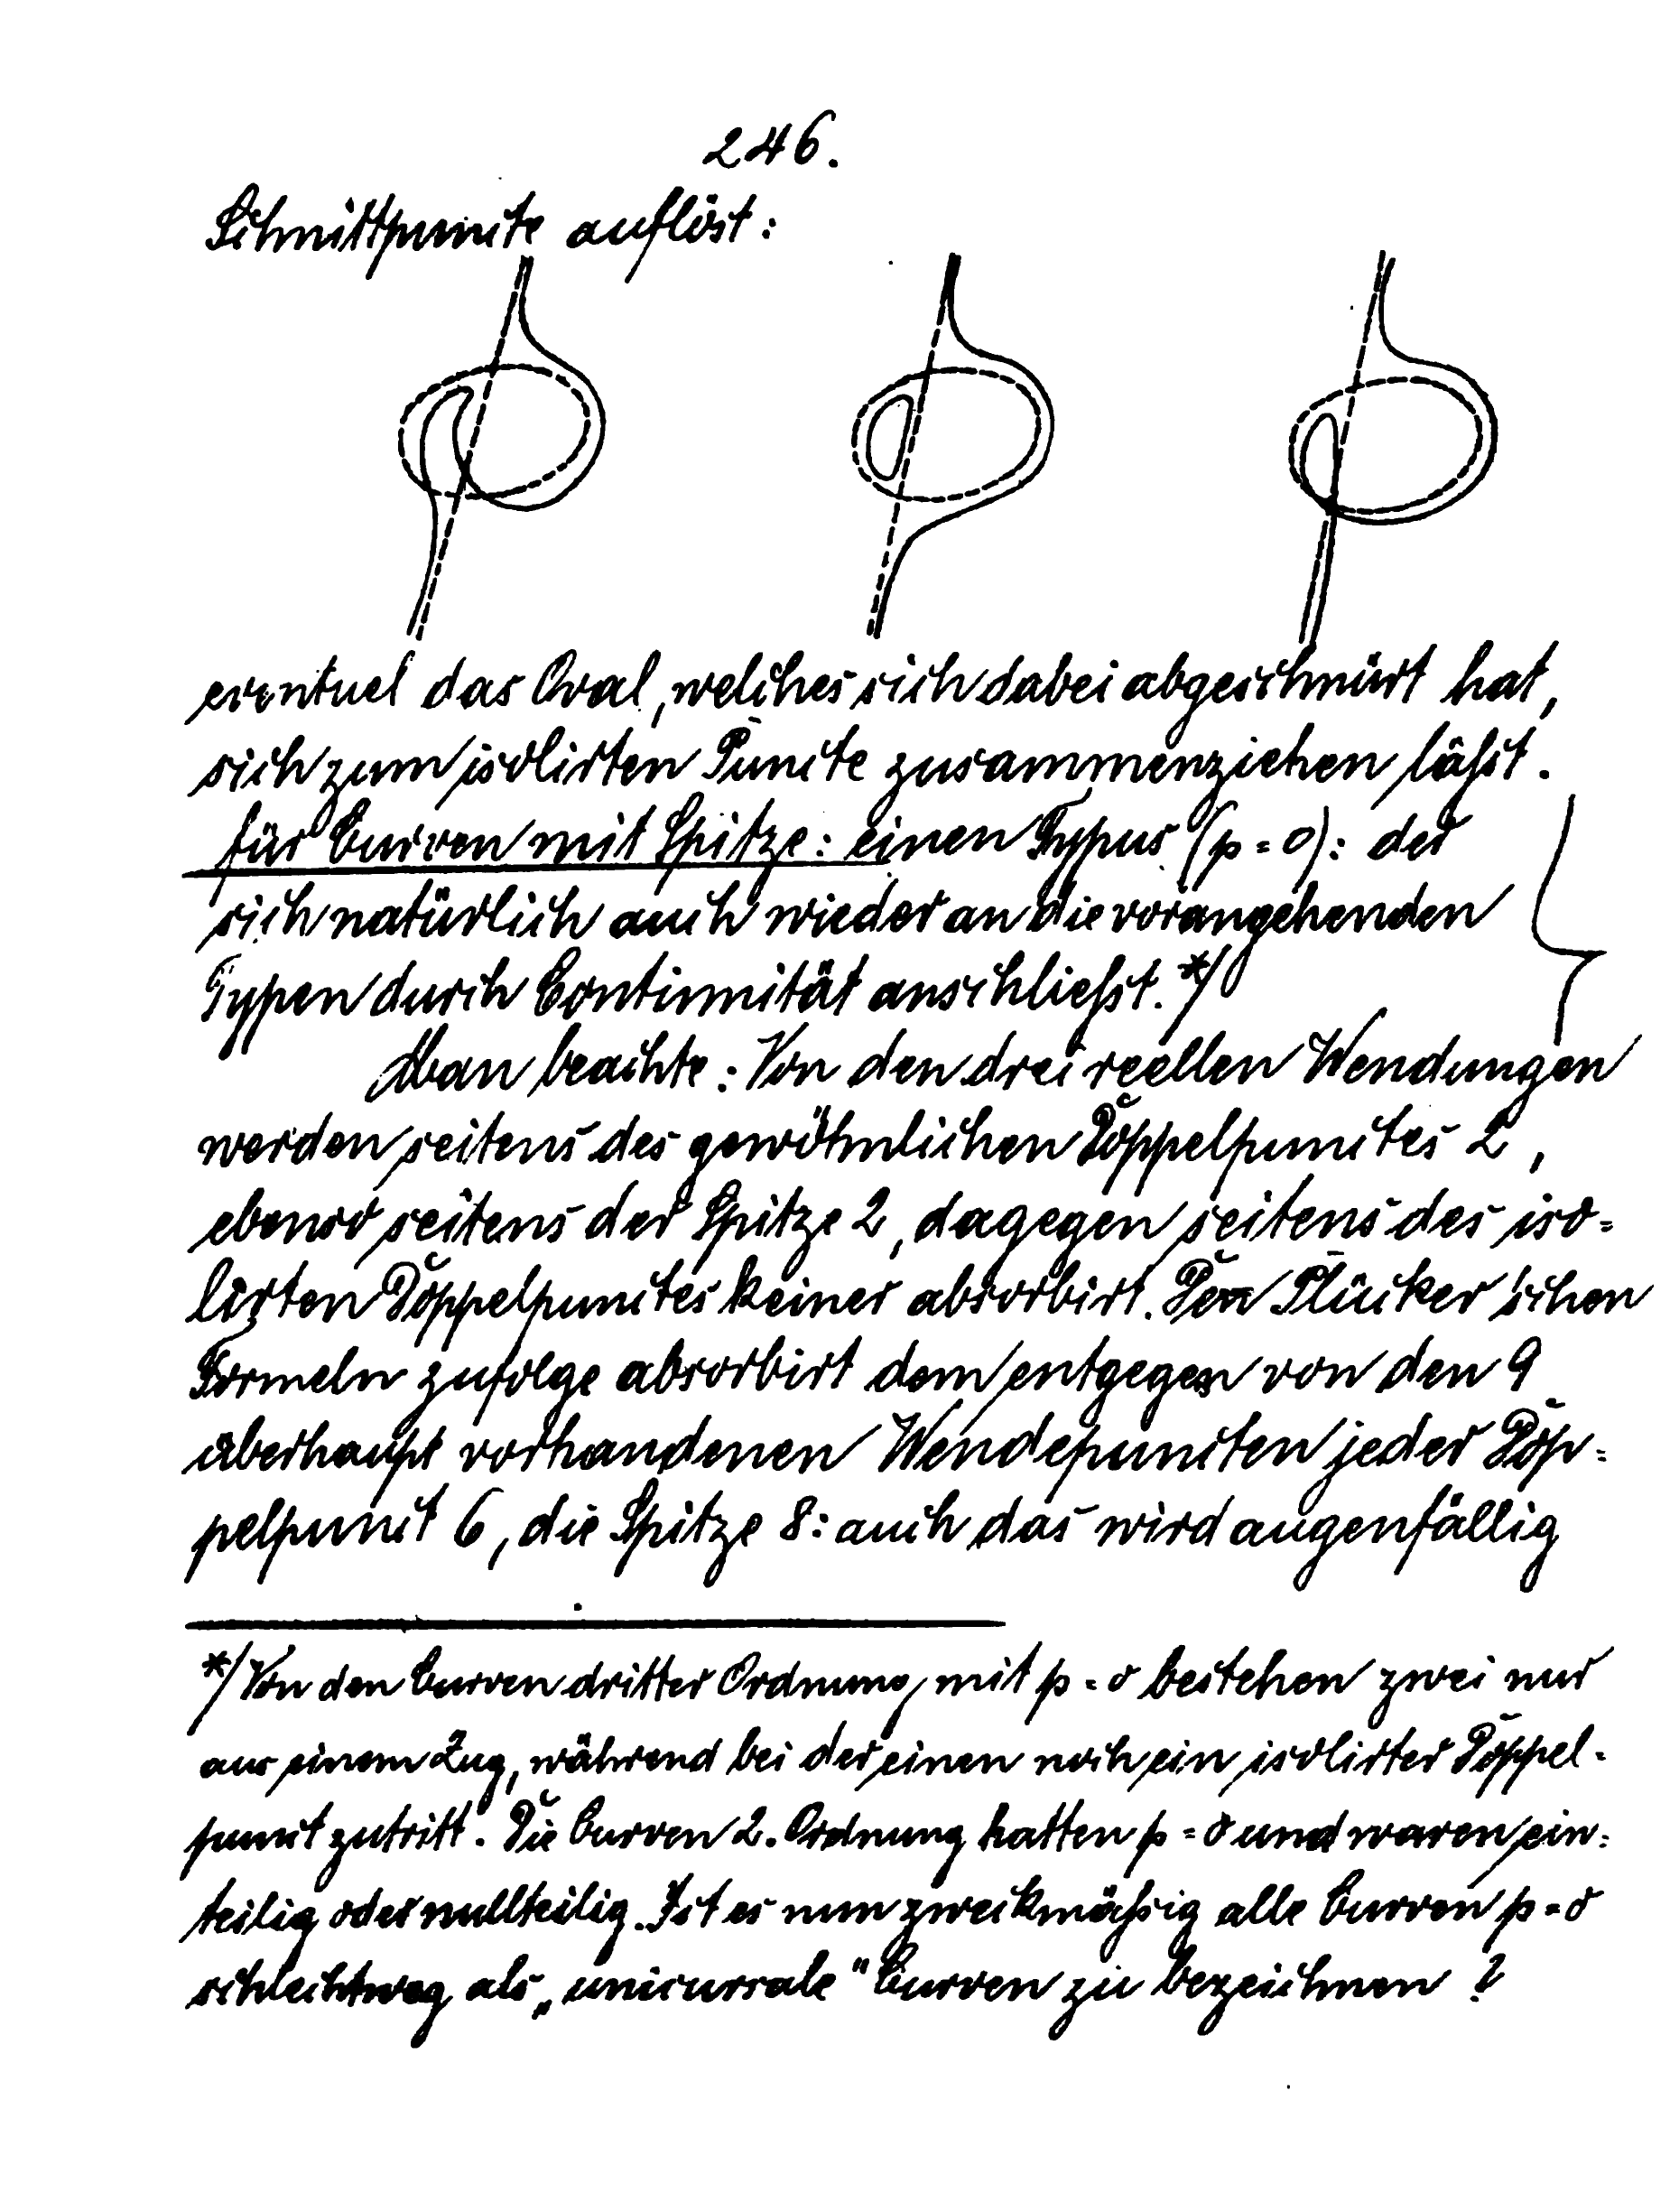 246.
Schnittpuncte auflöst:
eventuel das Oval, welches sich dabei abgeschnürt hat,
sich zum isolirten Puncte zusammenziehen läßt.
für Curven mit Spitze: einen Typus (p = 0): der
sich natürlich auch wieder an die vorangehenden
Typen durch Continuität anschließt.*)
Man beachte: Von den drei reellen Wendungen
werden seitens des gewöhnlichen Doppelpunctes 2,
ebenso seitens der Spitze 2, dagegen seitens des iso-
lirten Doppelpunctes keiner absorbirt. Den Plücker'schen
Formeln zufolge absorbirt dem entgegen von den 9
überhaupt vorhandenen Wendepuncten jeder Dop-
pelpunct 6, die Spitze 8: auch das wird augenfällig
*) Von den Curven dritter Ordnung mit p = 0 bestehen zwei nur
aus einem Zug, während bei der einen noch ein isolirter Doppel-
punct zutritt. Die Curven 2. Ordnung hatten p = 0 und waren ein-
teilig oder nullteilig. Ist es nun zweckmäßig alle Curven p = 0
schlechtweg als „unicursale" Curven zu bezeichnen?